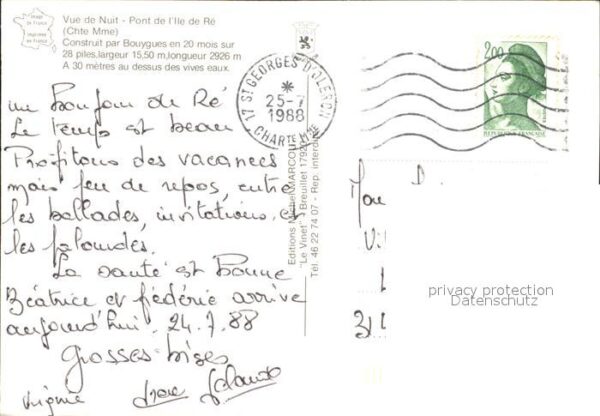 Image
de France
Imprimée
en France
Vue de Nuit - Pont de l'Ile de Ré
(Chte Mme)
Construit par Bouygues en 20 mois sur
28 piles,largeur 15,50 m,longueur 2926 m
A 30 mètres au dessus des vives eaux.
un bonjour de Ré
Le temps est beau
Profitons des vacances
mais peu de repos, entre
les ballades, invitations, et
les
La santé est bonne
Béatrice et fédéric arrive
aujourd'hui. 24.7.88
Grosses bises
17 ST GEORGES D'OLERON
25-7
1988
CHARTE MME
Editions Michel MARCOU
"Le Vinet" - Breuillet 1792
Tél. 46 22 74 07 - Rep. interdite
2,00
REPUBLIQUE FRANÇAISE
D.
privacy protection
Datenschutz